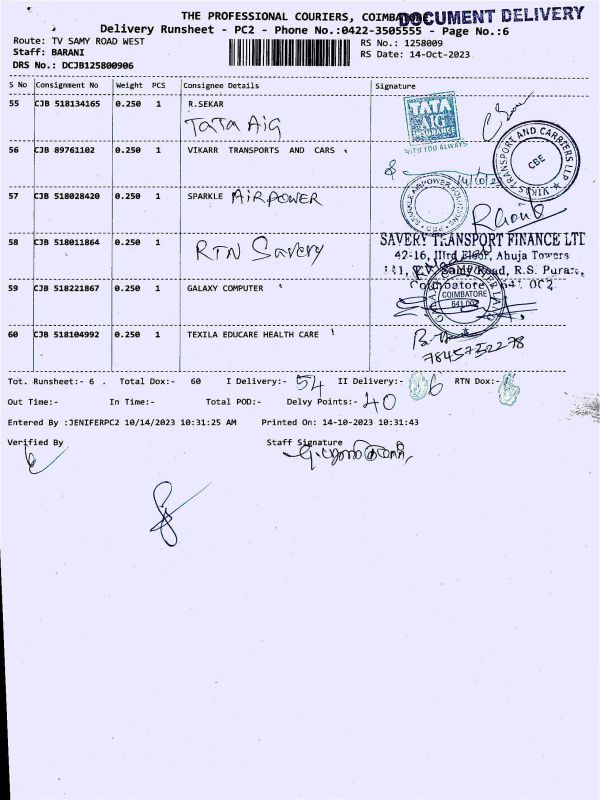 THE PROFESSIONAL COURIERS, COIMBATORE
DOCUMENT DELIVERY
Delivery Runsheet - PC2 - Phone No.:0422-3505555 - Page No.:6
Route: TV SAMY ROAD WEST RS No.: 1258009
Staff: BARANI RS Date: 14-Oct-2023
DRS No.: DCJB125800906
S No Consignment No Weight PCS Consignee Details Signature
55 CJB 518134165 0.250 1 R.SEKAR
TATA AIG
TATA
AIG
INSURANCE
WITH YOU ALWAYS
56 CJB 89761102 0.250 1 VIKARR TRANSPORTS AND CARS
CBE
14/10/23
57 CJB 518028420 0.250 1 SPARKLE AIRPOWER
58 CJB 518011864 0.250 1
RTN Savery
SAVERY TRANSPORT FINANCE LTD
42-16, IIIrd Floor, Ahuja Towers
Samy Road, R.S. Puram,
Coimbatore 641 002
59 CJB 518221867 0.250 1 GALAXY COMPUTER
COIMBATORE
641 002
60 CJB 518104992 0.250 1 TEXILA EDUCARE HEALTH CARE
7845752278
Tot. Runsheet:- 6 . Total Dox:- 60 I Delivery:- 54 II Delivery:- 6 RTN Dox:- 6
Out Time:- In Time:- Total POD:- Delvy Points:- 40
Entered By :JENIFERPC2 10/14/2023 10:31:25 AM Printed On: 14-10-2023 10:31:43
Verified By Staff Signature